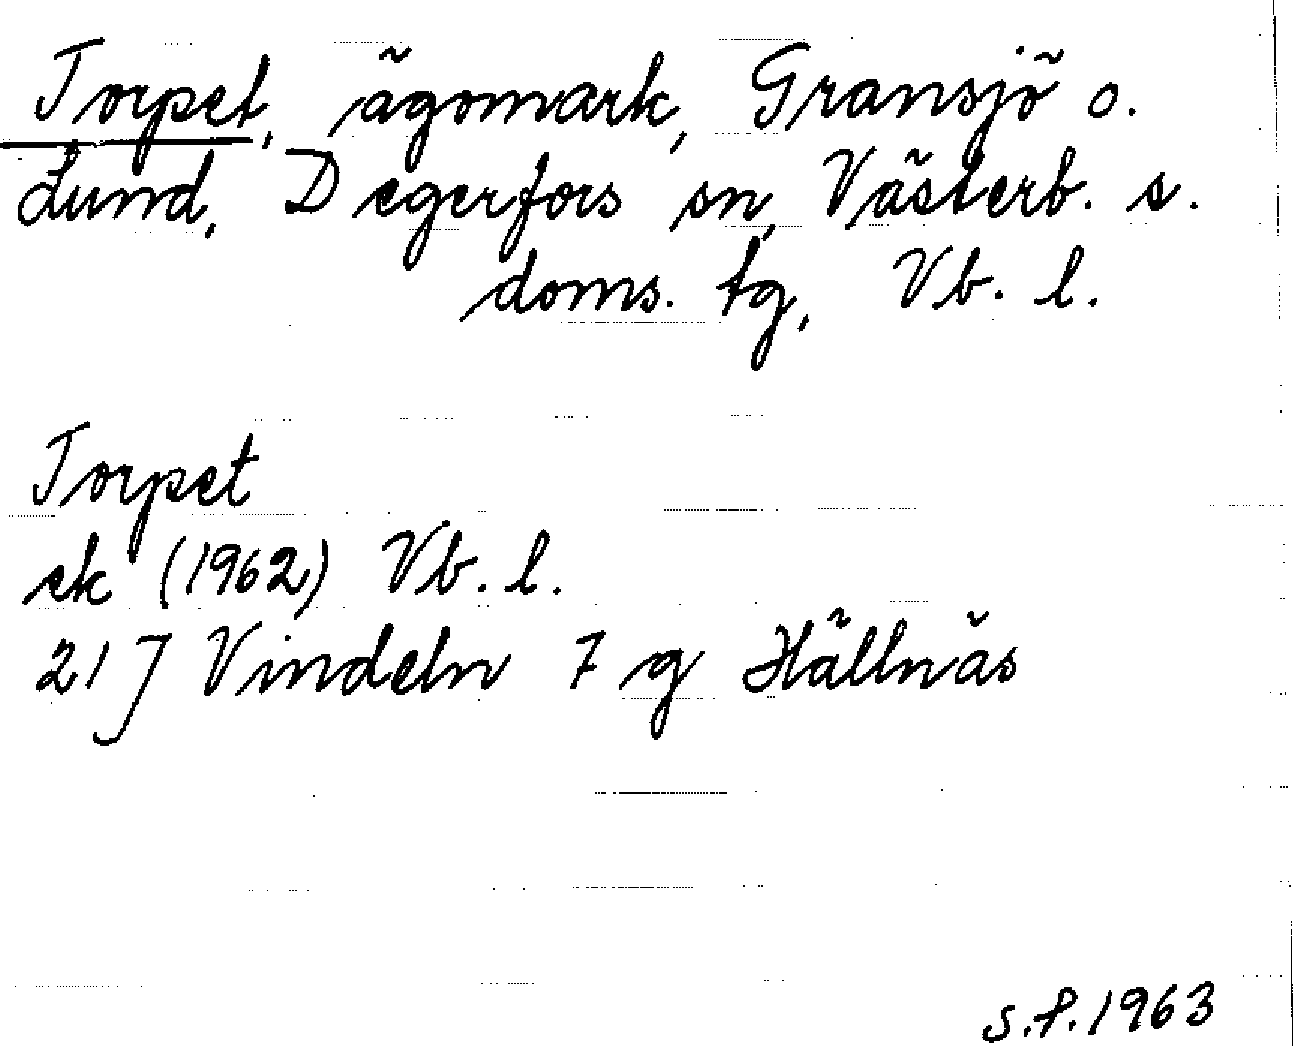 Torpet, ägomark, Gransjö o.
Lund, Degerfors sn, Västerb. s.
doms. tg, Vb. l.
Torpet
ek (1962) Vb. l.
21 J Vindeln 7 g Hällnäs
s.f. 1963